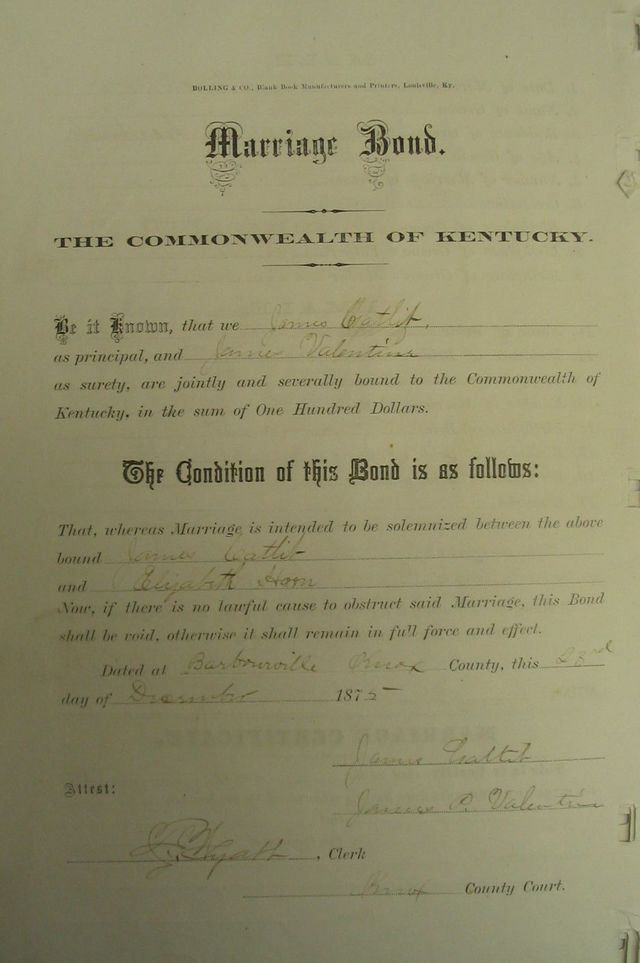 BOLLING & CO., Blank Book Manufacturers and Printers, Louisville, Ky.
Marriage Bond.
THE COMMONWEALTH OF KENTUCKY.
Be it Known, that we James Catlib,
as principal, and James Valentine
as surety, are jointly and severally bound to the Commonwealth of
Kentucky, in the sum of One Hundred Dollars.
The Condition of this Bond is as follows:
That, whereas Marriage is intended to be solemnized between the above
bound James Catlib
and Elizabeth Horn
Now, if there is no lawful cause to obstruct said Marriage, this Bond
shall be void, otherwise it shall remain in full force and effect.
Dated at Barbourville Knox County, this 23rd
day of December 1875
James Catlib
Attest:
James P. Valentine
Wyatt, Clerk
Knox County Court.